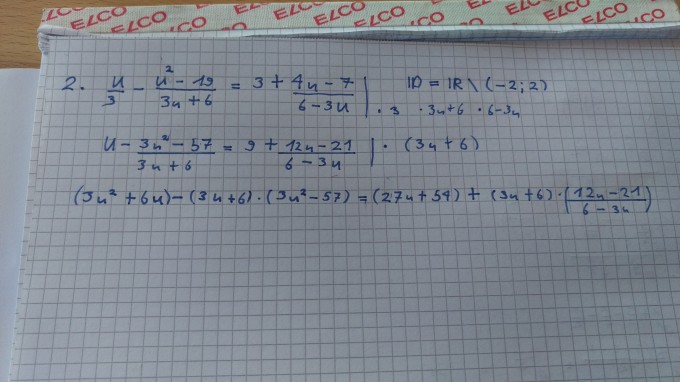 ELCO ELCO ELCO ELCO ELCO ELCO
2. u/3 - (u² - 19)/(3u + 6) = 3 + (4u - 7)/(6 - 3u) | · 3 · 3u+6 · 6-3u ID = IR \ (-2; 2)
u - (3u² - 57)/(3u + 6) = 9 + (12u - 21)/(6 - 3u) | · (3u + 6)
(3u² + 6u) - (3u+6) · (3u² - 57) = (27u + 54) + (3u+6) · (12u - 21)/(6 - 3u)